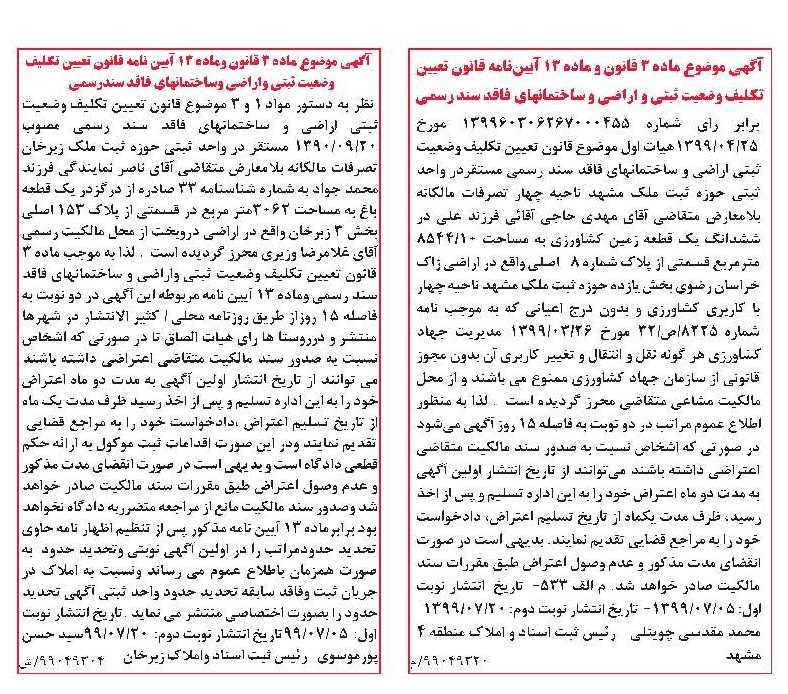 آگهی موضوع ماده ۳ قانون و ماده ۱۳ آیین‌نامه قانون تعیین
تکلیف وضعیت ثبتی و اراضی و ساختمانهای فاقد سند رسمی
برابر رای شماره ۱۳۹۹۶۰۳۰۶۲۶۷۰۰۰۴۵۵ مورخ
۱۳۹۹/۰۴/۲۵ هیات اول موضوع قانون تعیین تکلیف وضعیت
ثبتی اراضی و ساختمانهای فاقد سند رسمی مستقردر واحد
ثبتی حوزه ثبت ملک مشهد ناحیه چهار تصرفات مالکانه
بلامعارض متقاضی آقای مهدی حاجی آقائی فرزند علی در
ششدانگ یک قطعه زمین کشاورزی به مساحت ۸۵۴۴/۱۰
مترمربع قسمتی از پلاک شماره ۸ اصلی واقع در اراضی زاک
خراسان رضوی بخش یازده حوزه ثبت ملک مشهد ناحیه چهار
با کاربری کشاورزی و بدون درج اعیانی که به موجب نامه
شماره ۸۲۲۵/ص/۳۲ مورخ ۱۳۹۹/۰۳/۲۶ مدیریت جهاد
کشاورزی هر گونه نقل و انتقال و تغییر کاربری آن بدون مجوز
قانونی از سازمان جهاد کشاورزی ممنوع می باشند و از محل
مالکیت مشاعی متقاضی محرز گردیده است . لذا به منظور
اطلاع عموم مراتب در دو نوبت به فاصله ۱۵ روز آگهی می‌شود
در صورتی که اشخاص نسبت به صدور سند مالکیت متقاضی
اعتراضی داشته باشند می‌توانند از تاریخ انتشار اولین آگهی
به مدت دو ماه اعتراض خود را به این اداره تسلیم و پس از اخذ
رسید، ظرف مدت یکماه از تاریخ تسلیم اعتراض، دادخواست
خود را به مراجع قضایی تقدیم نمایند. بدیهی است در صورت
انقضای مدت مذکور و عدم وصول اعتراض طبق مقررات سند
مالکیت صادر خواهد شد. م الف ۵۳۳- تاریخ انتشار نوبت
اول: ۱۳۹۹/۰۷/۰۵- تاریخ انتشار نوبت دوم: ۱۳۹۹/۰۷/۲۰
محمد مقدسی چویتلی رئیس ثبت اسناد و املاک منطقه ۴
مشهد
۹۹۰۴۹۳۲۰/م
آگهی موضوع ماده ۳ قانون وماده ۱۳ آیین نامه قانون تعیین تکلیف
وضعیت ثبتی واراضی وساختمانهای فاقد سندرسمی
نظر به دستور مواد ۱ و ۳ موضوع قانون تعیین تکلیف وضعیت
ثبتی اراضی و ساختمانهای فاقد سند رسمی مصوب
۱۳۹۰/۰۹/۲۰ مستقر در واحد ثبتی حوزه ثبت ملک زبرخان
تصرفات مالکانه بلامعارض متقاضی آقای ناصر نمایندگی فرزند
محمد جواد به شماره شناسنامه ۳۳ صادره از درگزدر یک قطعه
باغ به مساحت ۳۰۶۲متر مربع در قسمتی از پلاک ۱۵۳ اصلی
بخش ۳ زبرخان واقع در اراضی درویخت از محل مالکیت رسمی
آقای غلامرضا وزیری محرز گردیده است . لذا به موجب ماده ۳
قانون تعیین تکلیف وضعیت ثبتی واراضی و ساختمانهای فاقد
سند رسمی وماده ۱۳ آیین نامه مربوطه این آگهی در دو نوبت به
فاصله ۱۵ روزاز طریق روزنامه محلی / کثیر الانتشار در شهرها
منتشر و درروستا ها رای هیات الصاق تا در صورتی که اشخاص
نسبت به صدور سند مالکیت متقاضی اعتراضی داشته باشند
می توانند از تاریخ انتشار اولین آگهی به مدت دو ماه اعتراض
خود را به این اداره تسلیم و پس از اخذ رسید ظرف مدت یک ماه
از تاریخ تسلیم اعتراض ،دادخواست خود را به مراجع قضایی
تقدیم نمایند ودر این صورت اقدامات ثبت موکول به ارائه حکم
قطعی دادگاه است وبدیهی است در صورت انقضای مدت مذکور
و عدم وصول اعتراض طبق مقررات سند مالکیت صادر خواهد
شد وصدور سند مالکیت مانع از مراجعه متضرربه دادگاه نخواهد
بود برابرماده ۱۳ آیین نامه مذکور پس از تنظیم اظهار نامه حاوی
تحدید حدودمراتب را در اولین آگهی نوبتی وتحدید حدود به
صورت همزمان باطلاع عموم می رساند ونسبت به املاک در
جریان ثبت وفاقد سابقه تحدید حدود واحد ثبتی آگهی تحدید
حدود را بصورت اختصاصی منتشر می نماید .تاریخ انتشار نوبت
اول: ۹۹/۰۷/۰۵تاریخ انتشار نوبت دوم: ۹۹/۰۷/۲۰سید حسن
پورموسوی رئیس ثبت اسناد واملاک زبرخان
۹۹۰۴۹۳۰۴/ش